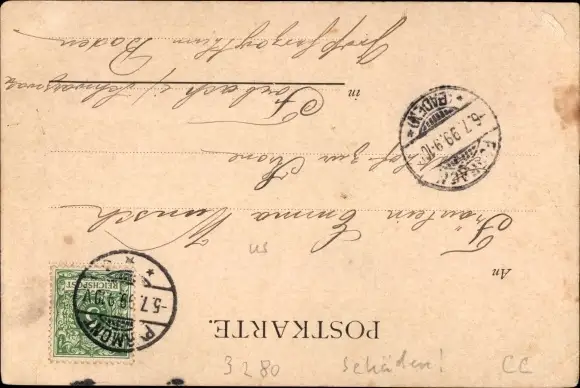 POSTKARTE.
An
Fräulein Emma Wunsch
Hof zur Krone
in Forbach i/ Schwarzwald
Großherzogthum Baden
REICHSPOST
5
5.7.99.9-10V
FORBACH
6.7.99.9-10
(BADEN)
us
3280
Schäden!
CC